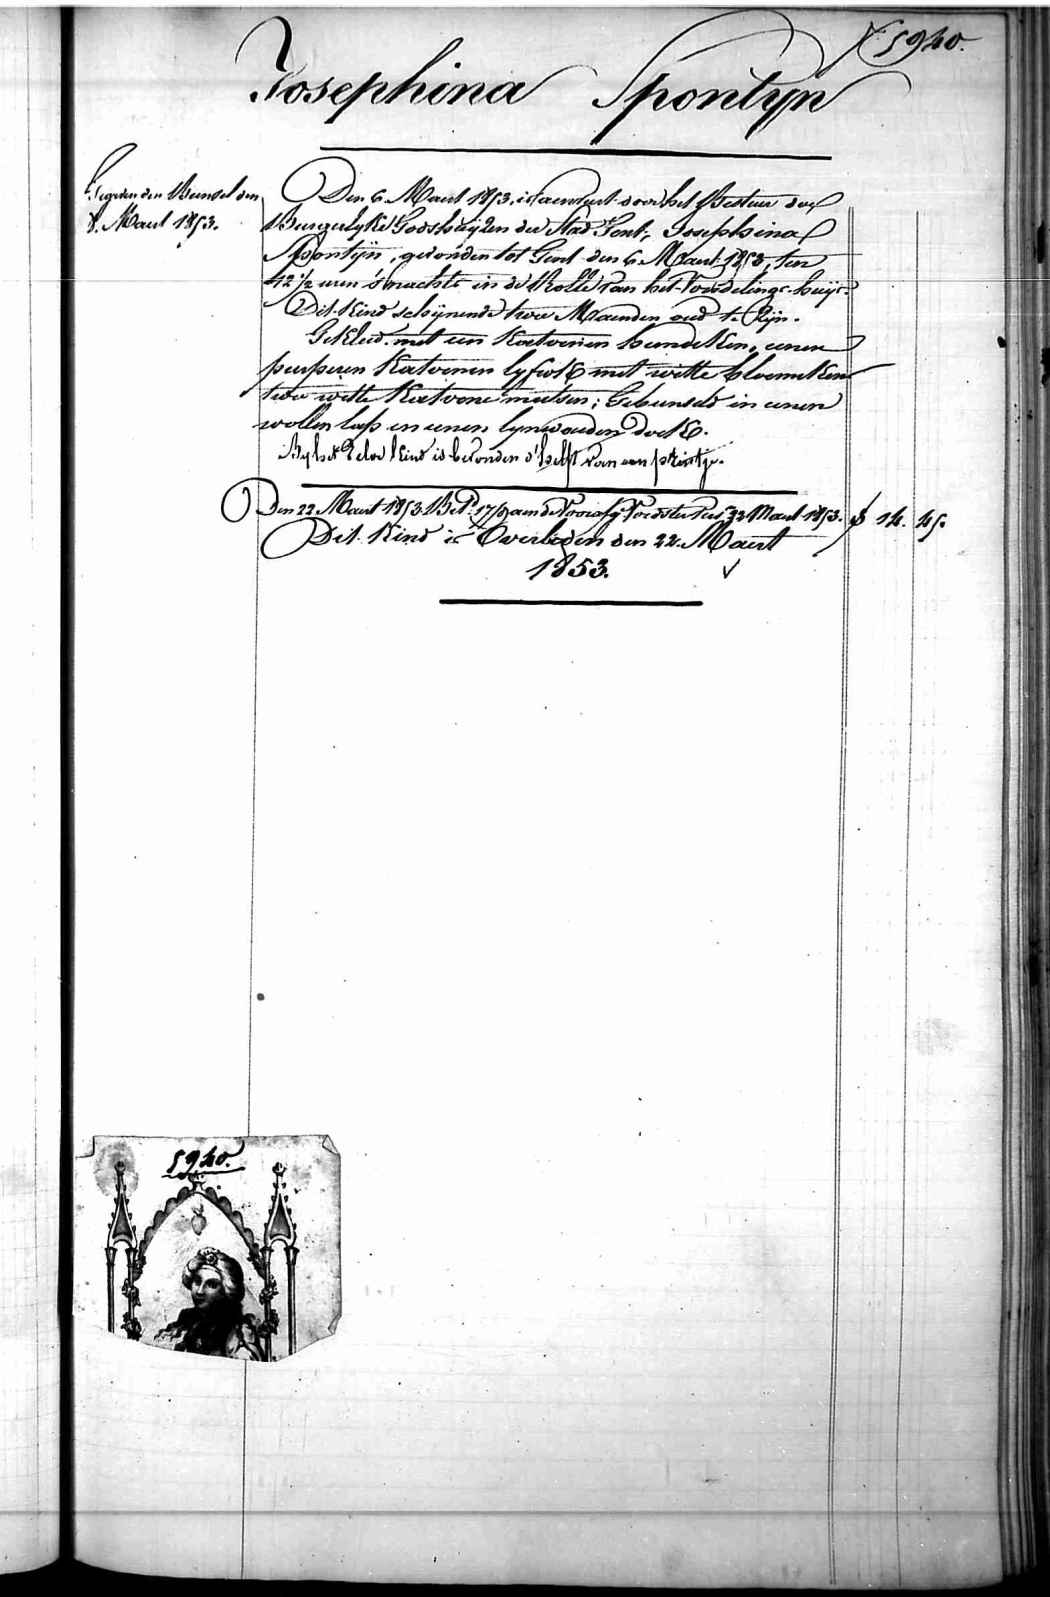 5940.
Josephina Spontyn
Gegeven den Bunsel den
8. Maert 1853.
Den 6 Maert 1853, is aenveert door het Bestuer der
Burgerlyke Godshuyzen der Stad Gent, Josephina
Spontijn, gevonden tot Gent den 6 Maert 1853, ten
12 1/2 uren s'nachts in de Rolle van het Vondelings-huijs.
Dit Kind schijnende twee Maenden oud te Zijn.
Gekleed met een Katoenen hemdeken, eenen
purperen Katoenen lyfrok met witte bloemeken
twee witte Katoene mutsen; Gebunseld in eenen
wollen lap en eenen lynwaeden doek.
By het Zelve Kind is bevonden d'helft van een printje.
Den 22 Maert 1853 Bet. 17 aen de Voorsten 22 Maert 1853. 14. 45.
Dit Kind is Overleden den 22. Maert
1853.
5940.